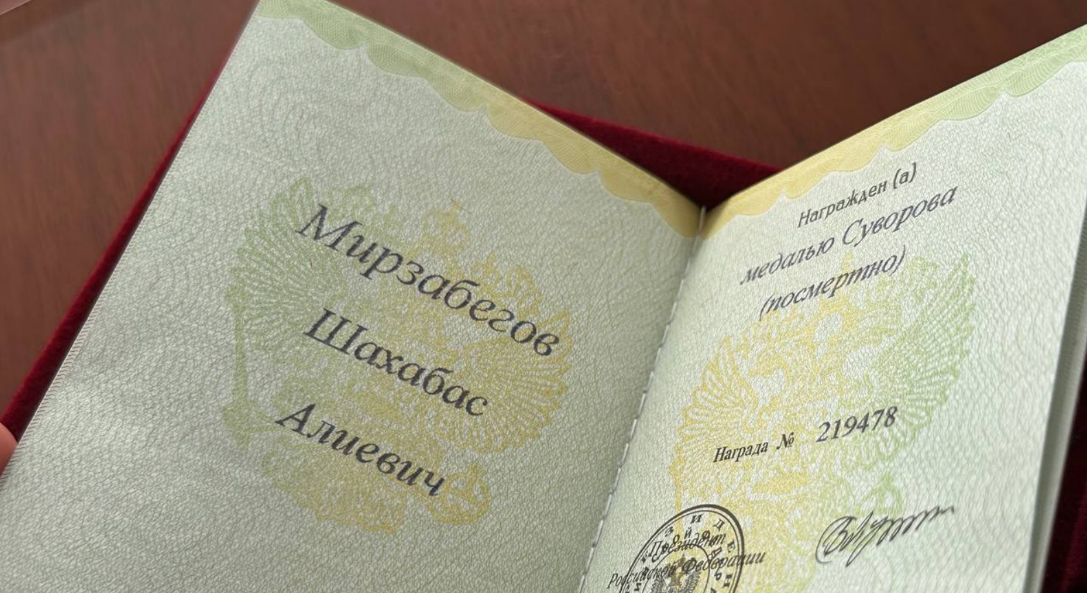 Мирзабегов
Шахабас
Алиевич
Награжден (а)
медалью Суворова
(посмертно)
Награда № 219478
Президент
Российской Федерации